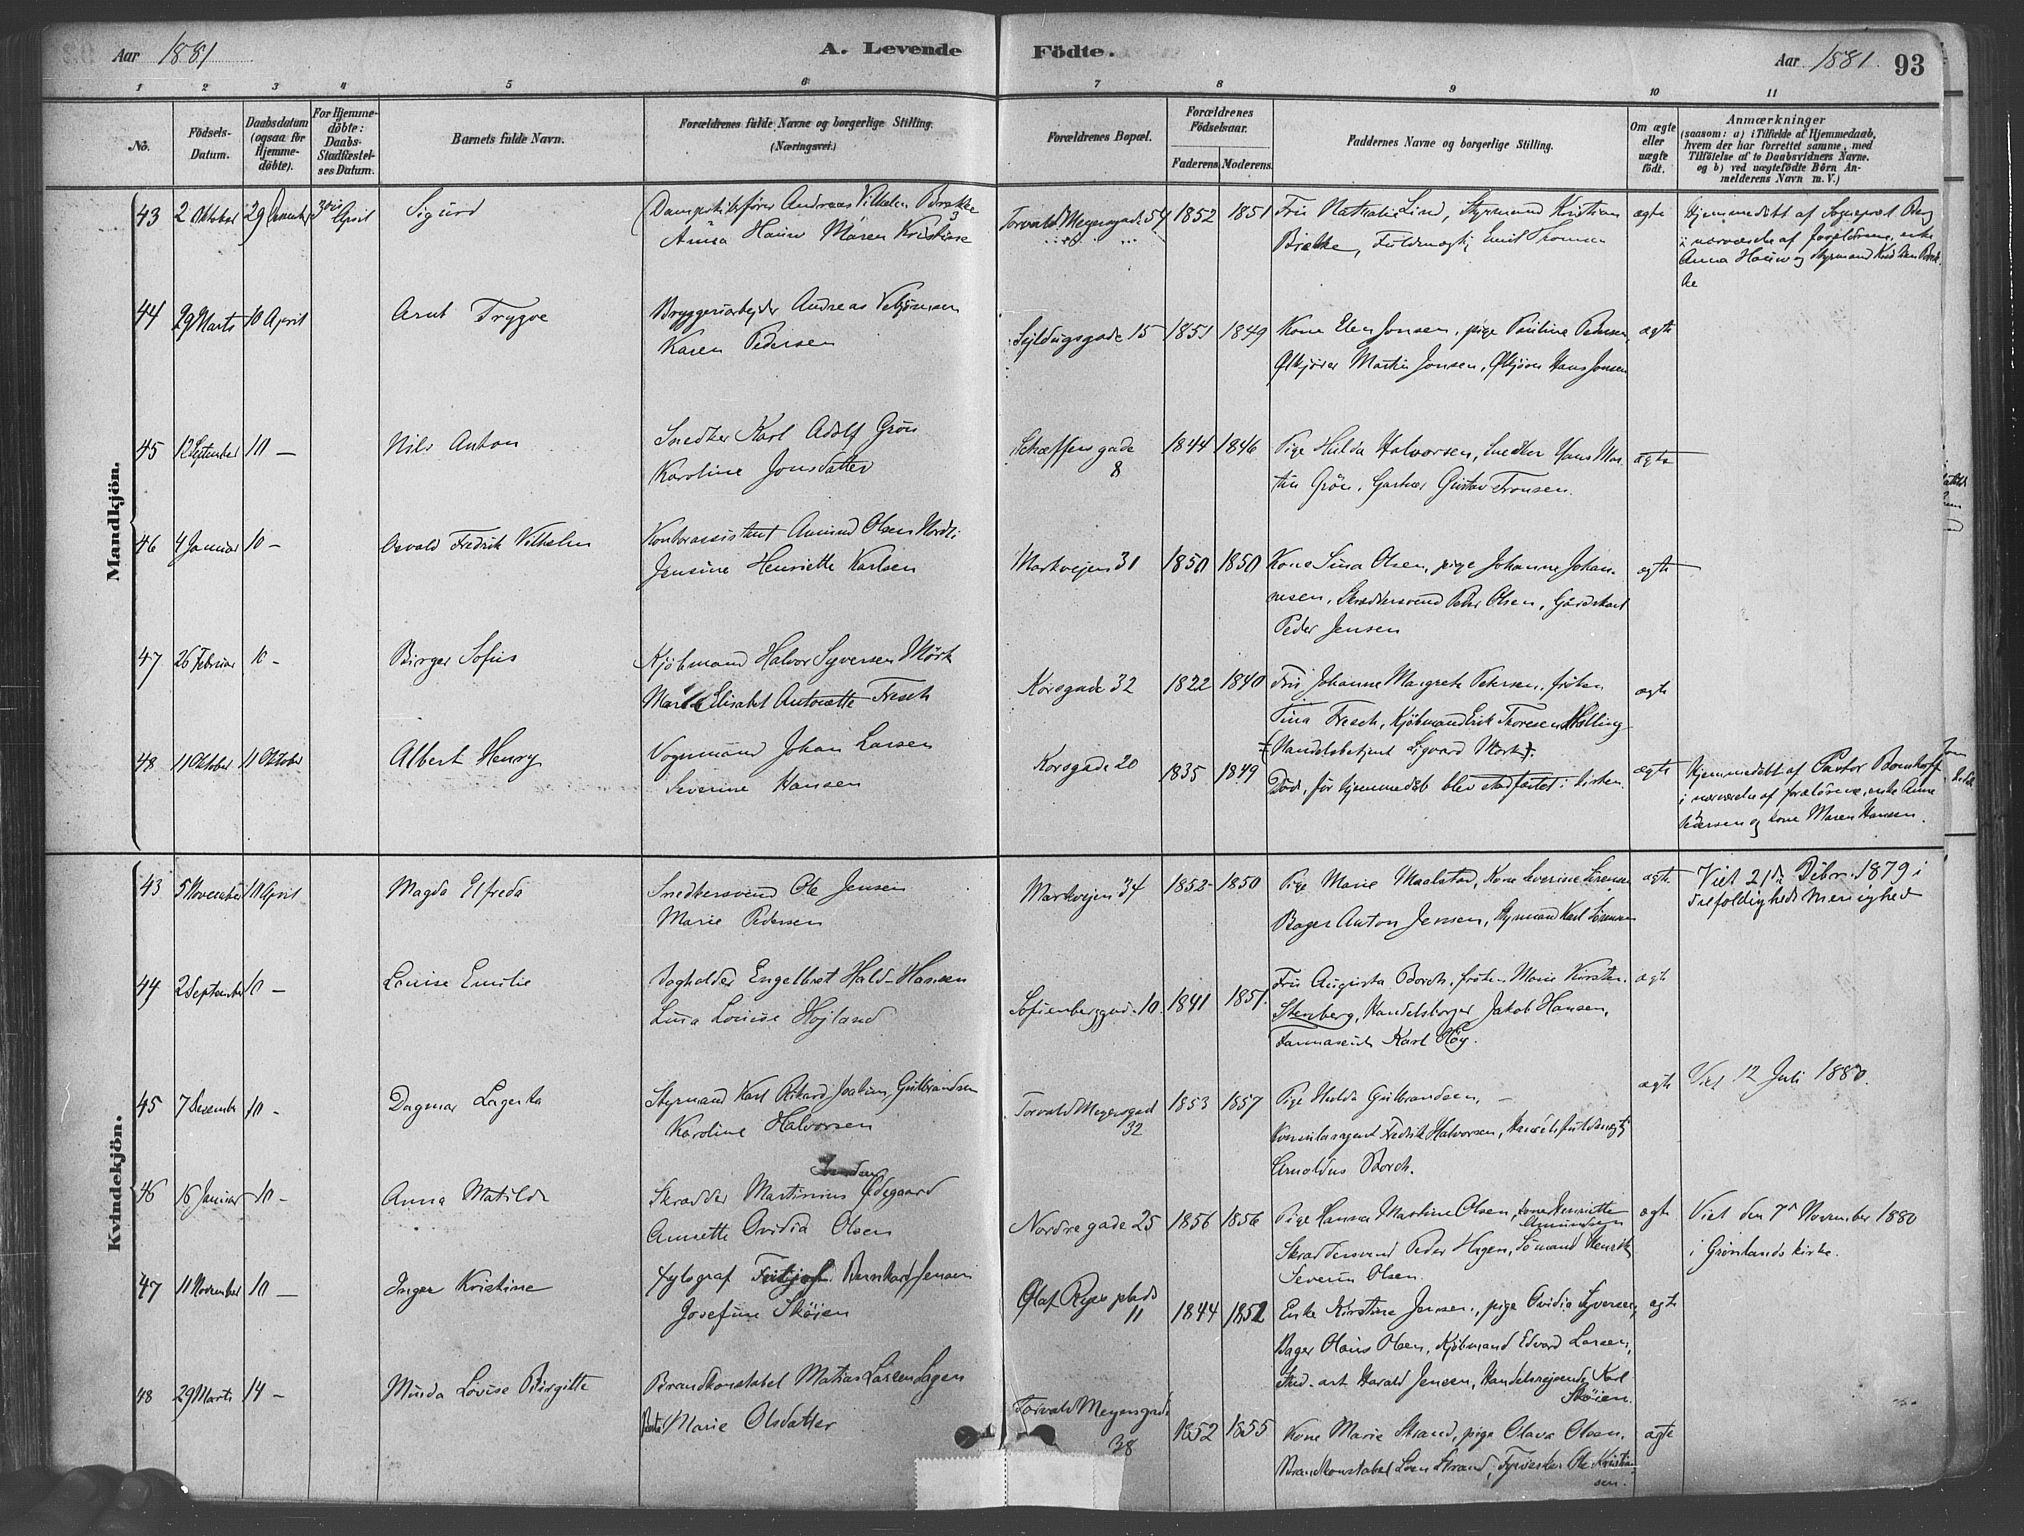 Aar 1881
A. Levende Födte.
Aar 1881. 93
1 2 3 4 5 6 7 8 9 10 11
No.
Födsels-Datum.
Daabsdatum (ogsaa for Hjemme-döbte).
For Hjemme-döbte: Daabs-Stadfæstel-ses Datum.
Barnets fulde Navn.
Forældrenes fulde Navne og borgerlige Stilling. (Næringsvei.)
Forældrenes Bopæl.
Forældrenes Födselsaar.
Faderens. Moderens.
Faddernes Navne og borgerlige Stilling.
Om ægte eller uægte födt.
Anmærkninger
(saasom: a) i Tilfælde af Hjemmedaab, hvem der har forrettet samme, med Tilföielse af to Daabsvidners Navne. og b) ved uægtefödte Börn An-melderens Navn m. V.)
Mandkjön.
43 2 Oktober 29 April Sigurd
Andreas Vilhelm Brække
Anna Maren
Torvald Meyersgade 54 1852 1851
Fru Nathalie Lind, Styrmand Kristian
Brække, Emil Thomsen
ægte
Hjemmedöbt af
i nærværelse af forældrene, enke
Anna og Styrmand
44 29 Marts 10 April Arnt Trygve
Bryggeriarbejder Andreas
Karen Pedersen
15 1851 1849
Kone Elen Jonsen, pige Pauline Pedersen,
Ølkjører Martin Jonsen, Ølkjører Hans Jonsen
ægte
45 12 September 10 — Nils Anton
Snedker Karl Adolf Grön
Karoline Jonsdatter
Schæffersgade 8 1844 1846
Pige Hulda Halvorsen, Snedker Hans Mar-
tin Grön, Gartner Gustav Fransen.
ægte
46 4 Januar 10 — Osvald Fredrik Vilhelm
Kontorassistent Amund Olsen Nordli
Jensine Henriette Karlsen
Markvejen 31 1850 1850
Kone Sina Olsen, pige Johanne Johan-
nesen, Skræddersvend Peder Olsen, Gårdskarl
Peder Jensen
ægte
47 26 Februar 10 — Birger Sofus
Kjöbmand Halvor Syversen Mörk
Elisabet Antonette Fresch
Korsgade 32 1822 1840
Fru Johanne Margrete Petersen, fröken
Tina Fresch, Kjöbmand Erik Thoresen Hølling
(Handelsbetjent Sigvard Mörk).
ægte
48 11 Oktober 11 Oktober Albert Henry
Vognmand Johan Larsen
Severine Hansen
Korsgade 20 1835 1849
Död, för hjemmedåb blev stadfæstet i kirken.
ægte
Hjemmedöbt af Pastor
i nærværelse af forældrene, enke Anne
Pedersen og kone Maren Hansen.
Kvindekjön.
43 5 November 10 April Magda Elfreda
Snedkersvend Ole Jensen
Marie Pedersen
Markvejen 34 1852 1850
Pige Marie Maalstad, Kone Severine Sörensen
Bager Anton Jensen, Styrmand Karl Sörensen
ægte
Viet 21de Debr. 1879 i
Trefoldigheds Menighed
44 2 September 10 — Lovise Emilie
Engelbret Hald-Hansen
Lina Lovise Höjland
Sofienberggad. 10 1841 1851.
Fru Augusta Borch, fröken Marie Kirstine
Stenberg, Handelsborger Jakob Hansen,
Karl Höy.
ægte
45 7 Desember 10 — Dagmar Lagerta
Styrmand Karl Rikard Joakim Gulbrandsen
Karoline Halvorsen
Torvald Meyersgad 32 1853 1857
Pige Hulda Gulbrandsen, —
Fredrik Halvorsen,
Arnoldus Borch.
ægte
Viet 12 Juli 1880.
46 16 Januar 10 — Anna Matilde
Skrædder Martinius Ødegaard
Annette Ovidia Olsen
Nordre gade 25 1856 1856
Pige Hanna Martine Olsen, kone Henriette
Amundsen
Skræddersvend Peder Hagen, Sömand Henrik
Severin Olsen.
ægte
Viet den 7de November 1880
i Grönlands kirke.
47 11 November 10 — Inger Kristine
Xylograf Fritjof Bernhard Jensen
Josefine Sköien
Olaf Ryes plads 11 1844 1852
Enke Kirstine Jensen, pige Ovidia Syversen,
Bager Olaus Olsen, Kjöbmand Edvard Larsen,
Stud. art Harald Jensen, Handelsrejsende Karl
Sköien.
ægte
48 29 Marts 14 — Minda Lovise Birgitte
Brandkonstabel Matias Larsen Lagen
Marie Olsdatter
Torvald Meyersgade 38 1852 1855
Kone Marie Strand, pige Olava Olsen,
Brandkonstabel Strand, Ole Kristian-
sen.
ægte